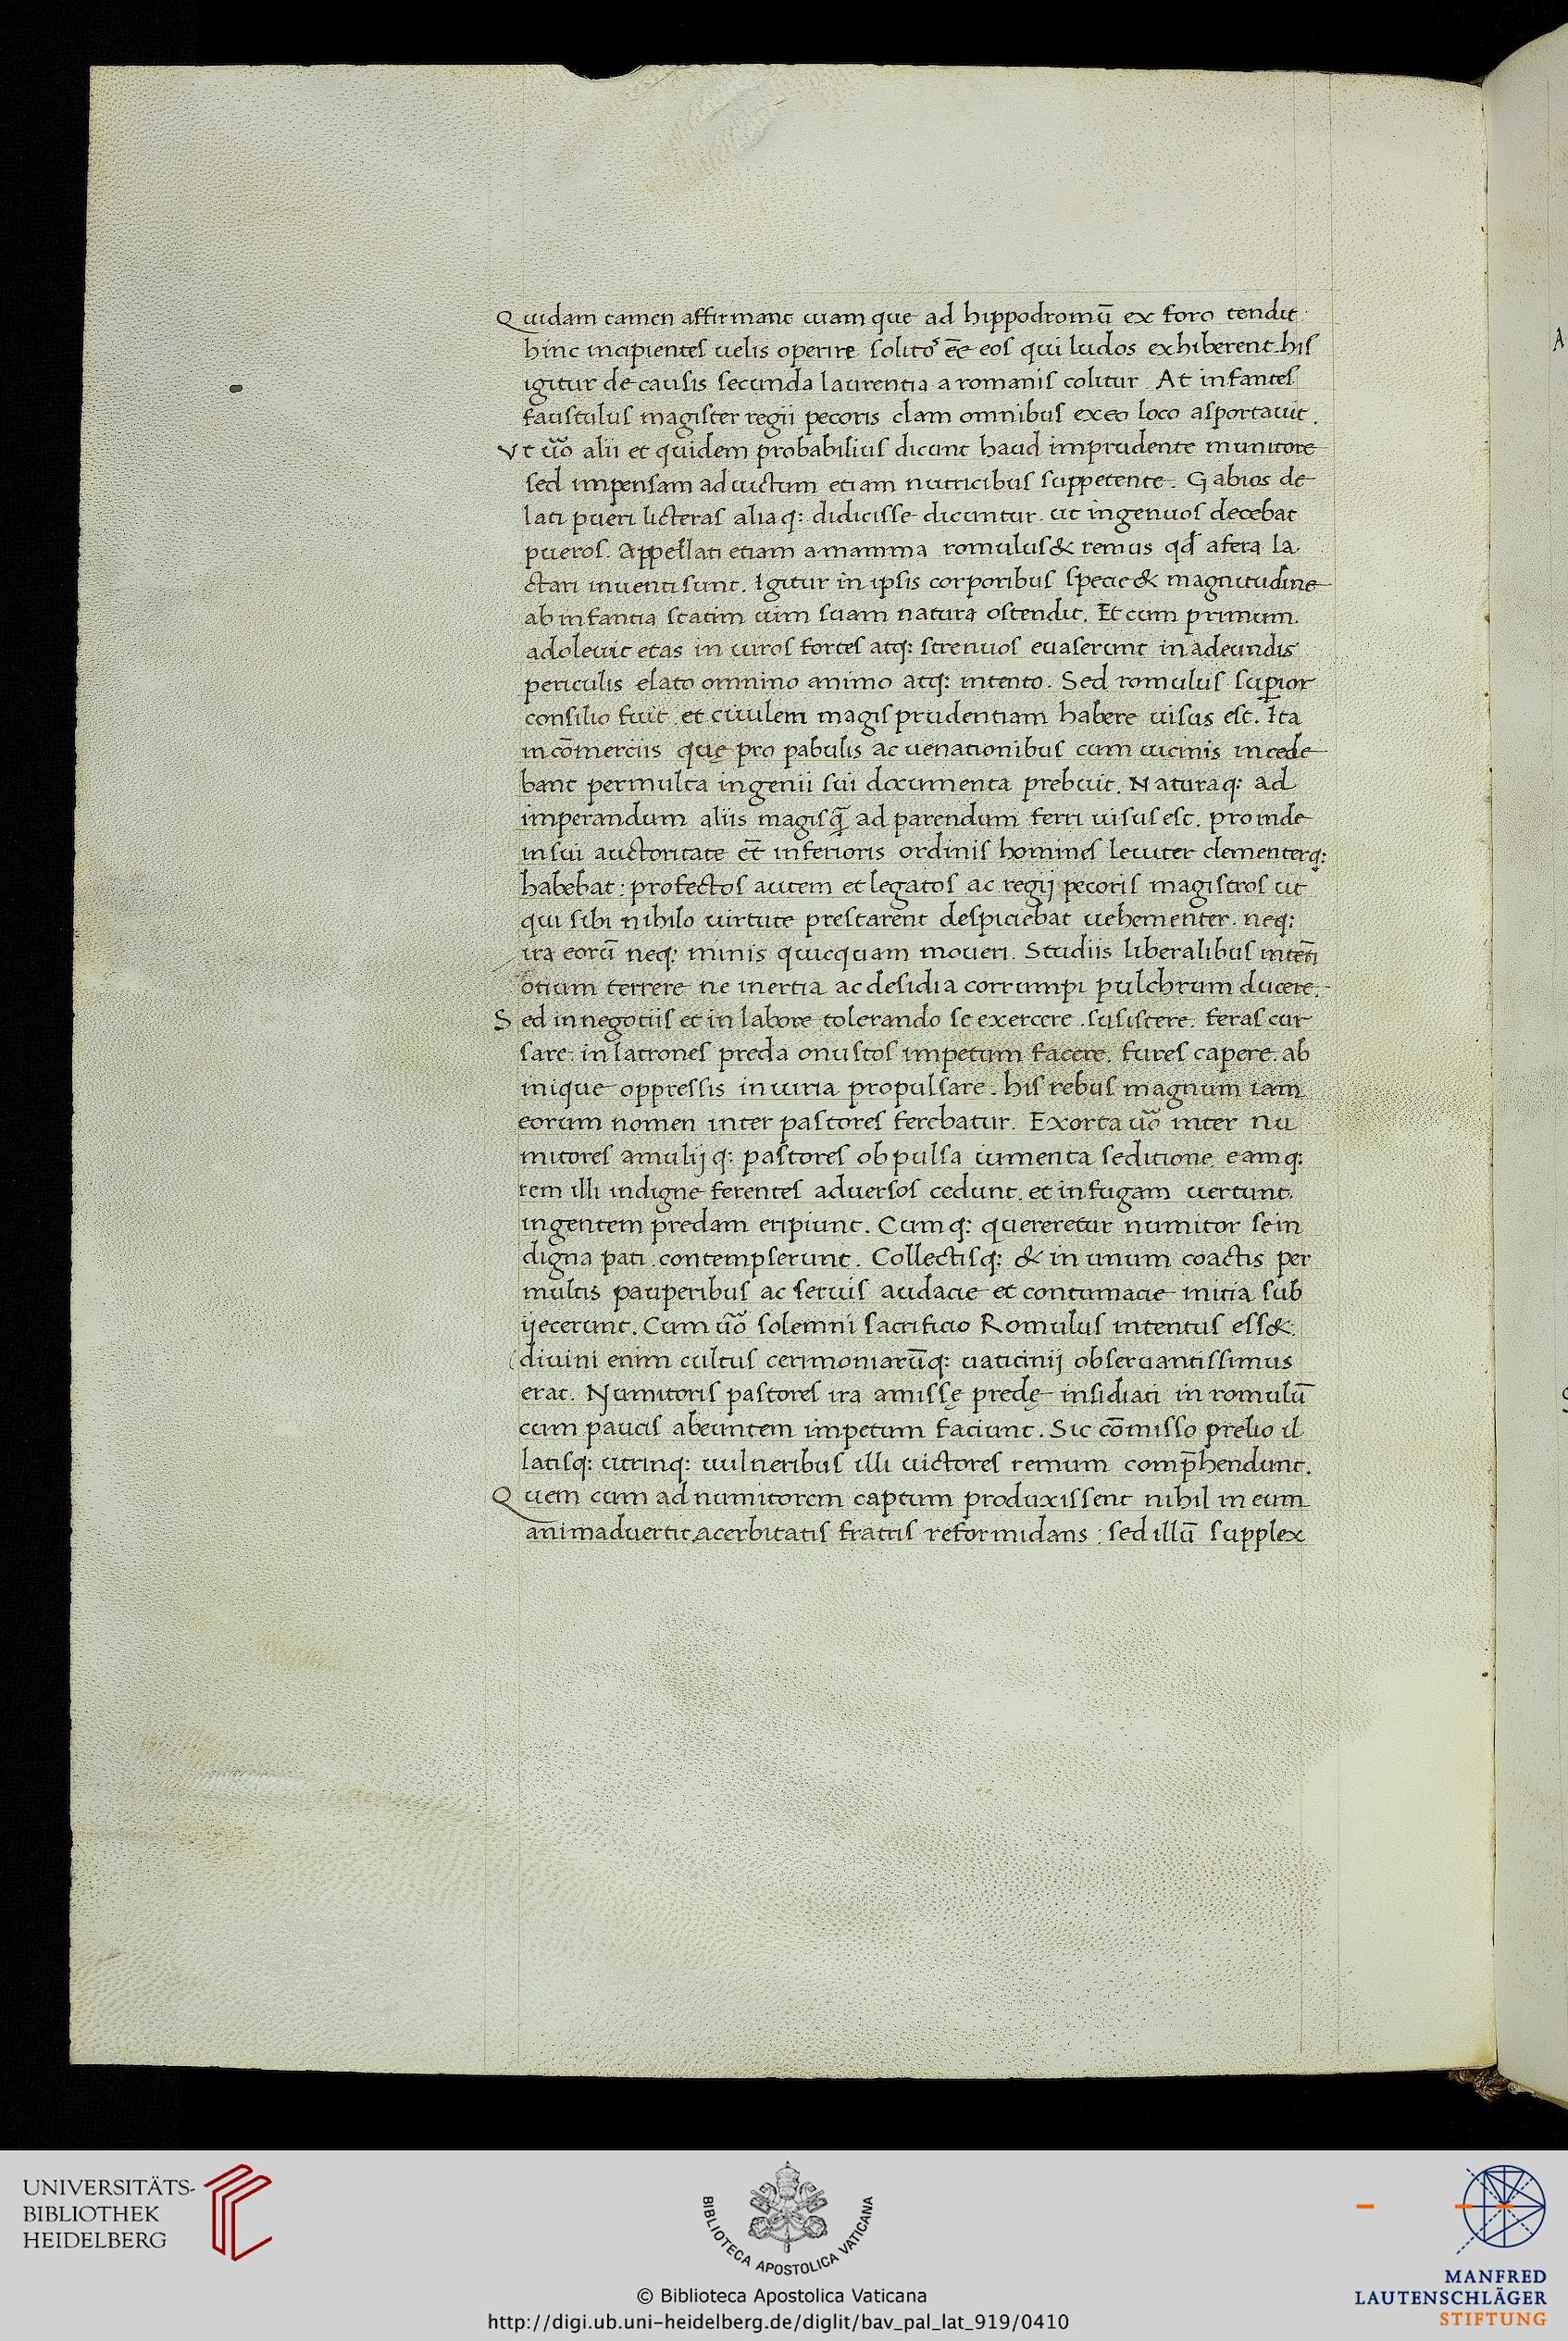 Quidam tamen affirmant uiam que ad hippodromū ex foro tendit
hinc incipientes uelis operire solitos eē eos qui ludos exhiberent. his
igitur de causis secunda laurentia a romanis colitur. At infantes
faustulus magister regii pecoris clam omnibus ex eo loco asportauit.
Vt uo alii et quidem probabilius dicunt haud imprudente munitore
sed impensam ad uictum etiam nutricibus suppetente. Gabios de
lati pueri licteras aliaq: didicisse dicuntur. ut ingenuos decebat
pueros. Appellati etiam a mamma romulus & remus qd a fera la
ctari inuenti sunt. Igitur in ipsis corporibus specie & magnitudine
ab infantia statim uim suam natura ostendit. Et cum primum
adoleuit etas in uiros fortes atq: strenuos euaserunt in adeundis
periculis elato omnino animo atq: intento. Sed romulus superior
consilio fuit. et ciuilem magis prudentiam habere uisus est. Ita
in cōmerciis quę pro pabulis ac uenationibus cum uicinis incede
bant permulta ingenii sui documenta prebuit. Naturaq: ad
imperandum aliis magisq̄ ad parendum ferri uisus est. proinde
in sui auctoritate et̄ inferioris ordinis homines leuiter clementerq:
habebat: profectos autem et legatos ac regij pecoris magistros ut
qui sibi nihilo uirtute prestarent despiciebat uehementer. neq:
ira eorū neq: minis quicquam moueri. Studiis liberalibus intēti
otium terrere ne inertia ac desidia corrumpi pulchrum ducere.
Sed in negotiis et in labore tolerando se exercere. susistere. feras cur
sare. in latrones preda onustos impetum facere. fures capere. ab
inique oppressis iniuria propulsare. his rebus magnum iam
eorum nomen inter pastores ferebatur. Exorta uo inter nu
mitores amulijq: pastores ob pulsa iumenta seditione. eamq:
rem illi indigne ferentes aduersos cedunt. et in fugam uertunt.
ingentem predam eripiunt. Cumq: quereretur numitor se in
digna pati. contempserunt. Collectisq: & in unum coactis per
multis pauperibus ac seruis audacie et contumacie initia sub
ijecerunt. Cum uo solemni sacrificio Romulus intentus ess&.
(diuini enim cultus cerimoniarūq: uaticinij obseruantissimus
erat. Numitoris pastores ira amissę predę insidiati in romulū
cum paucis abeuntem impetum faciunt. Sic cōmisso prelio il
latisq: utrinq: uulneribus illi uictores remum comp̄hendunt.
Quem cum ad numitorem captum produxissent nihil in eum
animaduertit. acerbitatis fratris reformidans: sed illū supplex
UNIVERSITÄTS-
BIBLIOTHEK
HEIDELBERG
BIBLIOTECA APOSTOLICA VATICANA
© Biblioteca Apostolica Vaticana
http://digi.ub.uni-heidelberg.de/diglit/bav_pal_lat_919/0410
MANFRED
LAUTENSCHLÄGER
STIFTUNG